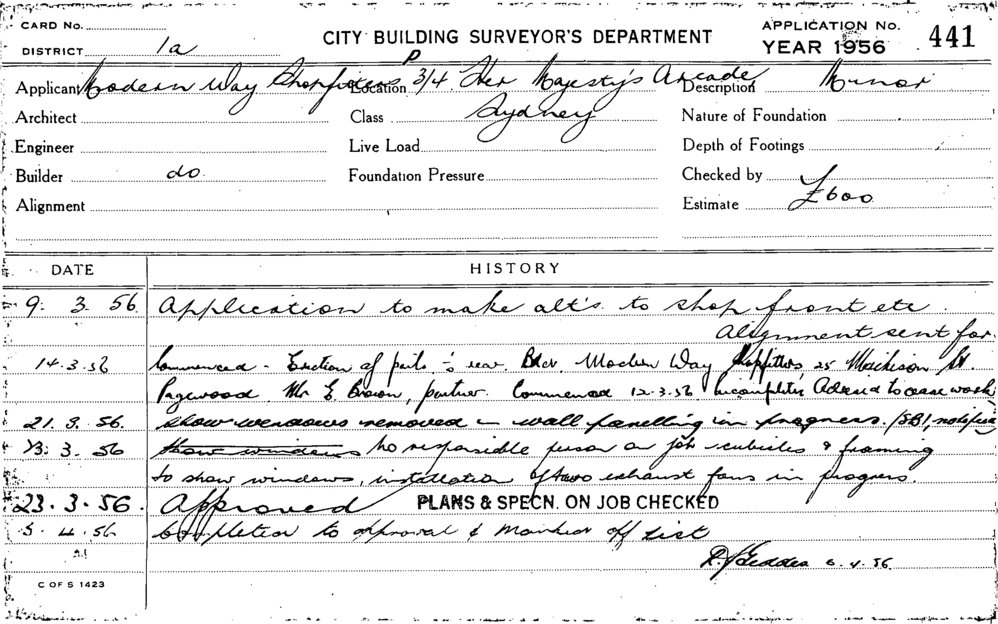 CARD No.
DISTRICT 1a
CITY BUILDING SURVEYOR'S DEPARTMENT
APPLICATION No. 441
YEAR 1956
Applicant Modern Way Shopfitters Location P 3/4 Her Majesty's Arcade Description Minor
Architect Class Sydney Nature of Foundation
Engineer Live Load Depth of Footings
Builder do. Foundation Pressure Checked by
Alignment Estimate £600
DATE HISTORY
9. 3. 56 Application to make alt's. to shop front etc.
Alignment sent for
14.3.56 Commenced - Erection of rear Bldr. Modern Way Shopfitters 25 St.
Pagewood. Mr E Brown, partner. Commenced 12.3.56 Incomplete. Advised to cease work
21.3.56. Show windows removed wall panelling in progress. notified
23.3.56 show windows No responsible person on job & framing
to show windows, installation of two exhaust fans in progress.
23.3.56. Approved PLANS & SPECN. ON JOB CHECKED
5.4.56 Completed to approval & marked off List
Geddes 6.4.56
C OF S 1423